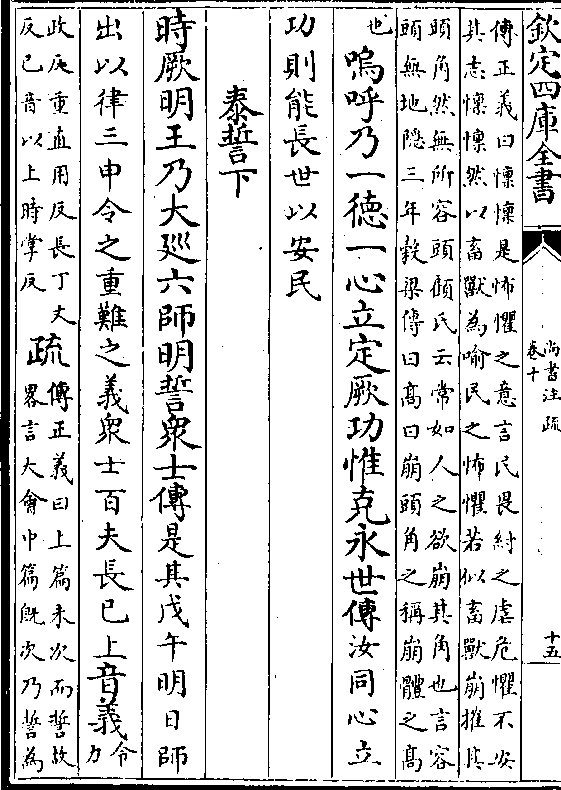 欽定四庫全書
尚書注疏
卷十
十五
傳正義曰懍懍是怖懼之意言民畏紂之虐危懼不安
其志懍懍然以畜獸為喻民之怖懼若似畜獸崩摧其
頭角然無所容頭顧氏云常如人之欲崩其角也言容
頭無地隱三年穀梁傳曰高曰崩頭角之稱崩體之高
也嗚呼乃一德一心立定厥功惟克永世傳汝同心立
功則能長世以安民
泰誓下
時厥明王乃大廵六師明誓衆士傳是其戊午明日師
出以律三申令之重難之義衆士百夫長已上音義令力
政反重直用反長丁丈
反已音以上時掌反
疏傳正義曰上篇未次而誓故
畧言大會中篇既次乃誓為